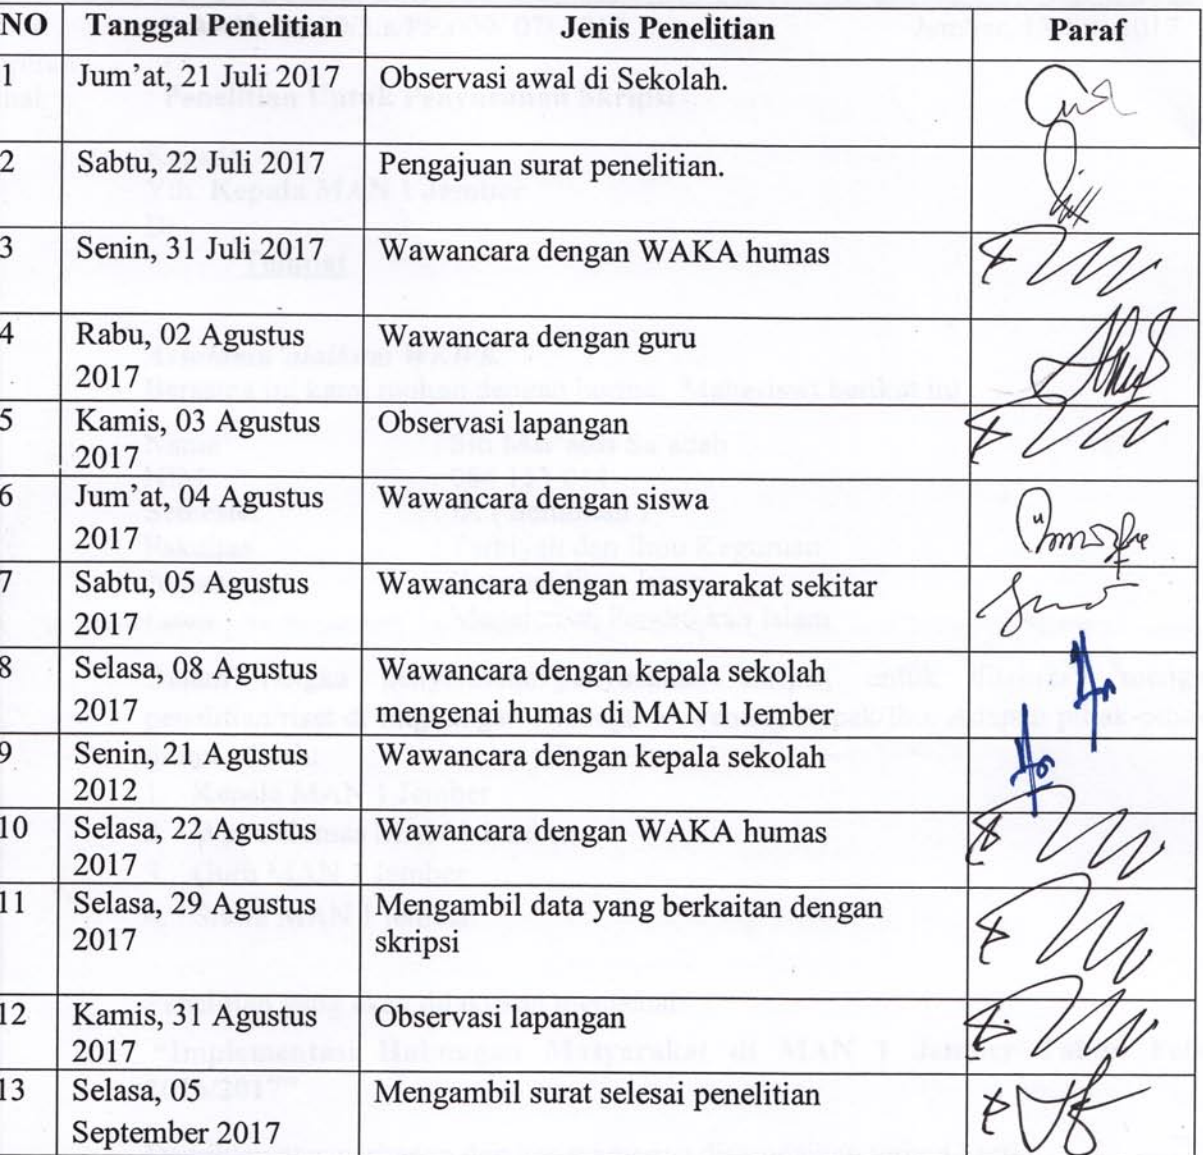 NO Tanggal Penelitian Jenis Penelitian Paraf
1 Jum'at, 21 Juli 2017 Observasi awal di Sekolah.
2 Sabtu, 22 Juli 2017 Pengajuan surat penelitian.
3 Senin, 31 Juli 2017 Wawancara dengan WAKA humas
4 Rabu, 02 Agustus Wawancara dengan guru
2017
5 Kamis, 03 Agustus Observasi lapangan
2017
6 Jum'at, 04 Agustus Wawancara dengan siswa
2017
7 Sabtu, 05 Agustus Wawancara dengan masyarakat sekitar
2017
8 Selasa, 08 Agustus Wawancara dengan kepala sekolah
2017 mengenai humas di MAN 1 Jember
9 Senin, 21 Agustus Wawancara dengan kepala sekolah
2012
10 Selasa, 22 Agustus Wawancara dengan WAKA humas
2017
11 Selasa, 29 Agustus Mengambil data yang berkaitan dengan
2017 skripsi
12 Kamis, 31 Agustus Observasi lapangan
2017
13 Selasa, 05 Mengambil surat selesai penelitian
September 2017